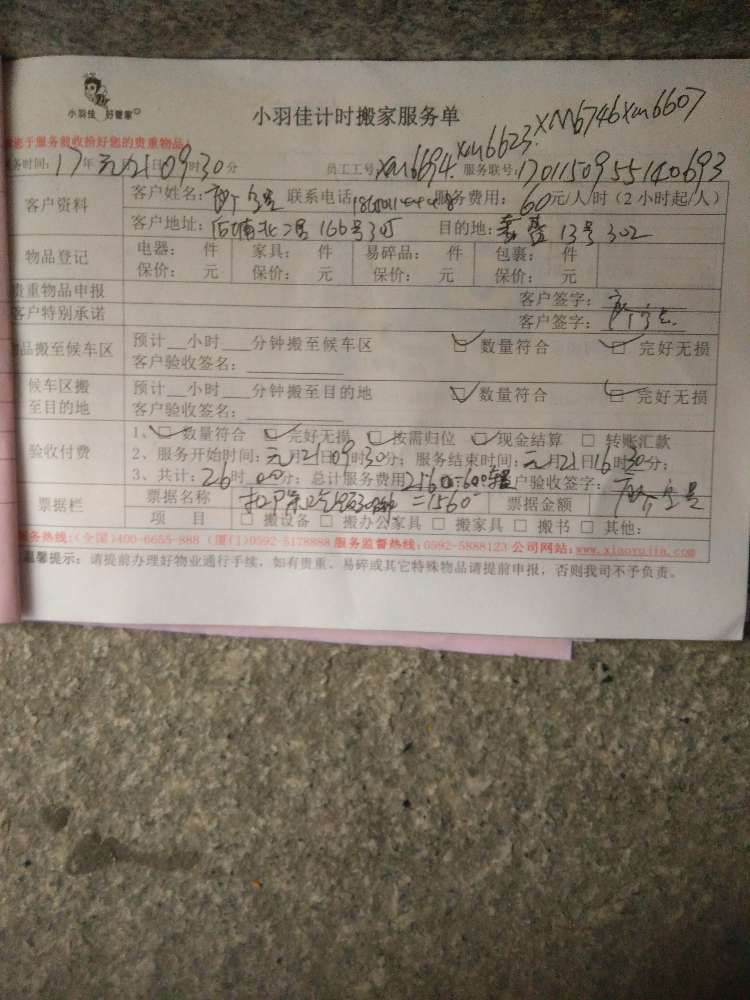 小羽佳 好管家
小羽佳计时搬家服务单
xm6694. xm6623. xm6746 xm6607
于服务前收拾好您的贵重物品
务时间：17年元月21日09时30分 员工工号 服务联号：1701150955140693
客户资料 客户姓名： 联系电话 服务费用：60元/人/时（2小时起/人）
客户地址：后埔北二路166号 目的地： 13号302
物品登记 电器： 件 家具： 件 易碎品： 件 包裹： 件
保价： 元 保价： 元 保价： 元 保价： 元
贵重物品申报 客户签字：
客户特别承诺 客户签字：
品搬至候车区 预计__小时__分钟搬至候车区 数量符合 完好无损
客户验收签名：
候车区搬至目的地 预计__小时__分钟搬至目的地 数量符合 完好无损
客户验收签名：
验收付费 1、数量符合 完好无损 按需归位 现金结算 转账汇款
2、服务开始时间：元月21日09时30分；服务结束时间：元月21日16时30分；
3、共计：26时00分；总计服务费用2160 客户验收签字：
票据栏 票据名称 =1560 票据金额
项 目 搬设备 搬办公家具 搬家具 搬书 其他：
服务热线：(全国)400-6655-888 (厦门)0592-5178888 服务监督热线：0592-5888123 公司网站：www.xiaoyujia.com
温馨提示：请提前办理好物业通行手续，如有贵重、易碎或其它特殊物品请提前申报，否则我司不予负责。